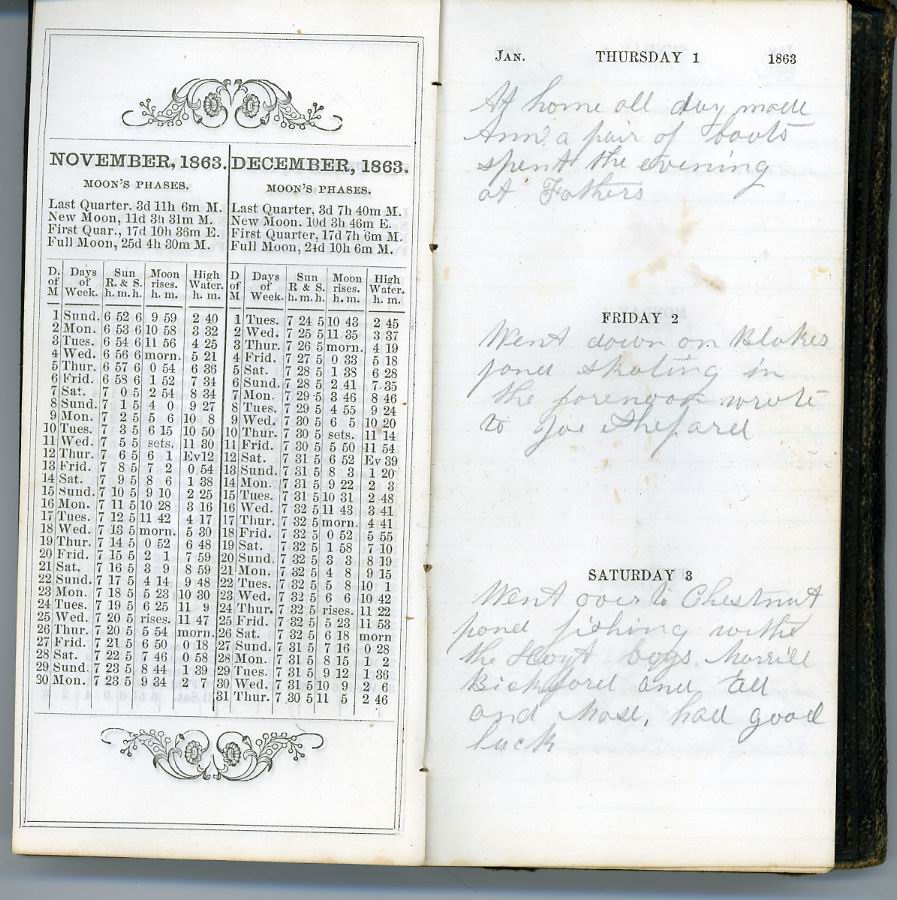 NOVEMBER, 1863.
MOON'S PHASES.
Last Quarter. 3d 11h 6m M.
New Moon, 11d 3h 31m M.
First Quar., 17d 10h 36m E.
Full Moon, 25d 4h 30m M.
D. of M Days of Week. Sun R. & S. h. m. h. Moon rises. h. m. High Water. h. m.
1 Sund. 6 52 6 9 59 2 40
2 Mon. 6 53 6 10 58 3 32
3 Tues. 6 54 6 11 56 4 25
4 Wed. 6 56 6 morn. 5 21
5 Thur. 6 57 6 0 54 6 36
6 Frid. 6 58 6 1 52 7 34
7 Sat. 7 0 5 2 54 8 34
8 Sund. 7 1 5 4 0 9 27
9 Mon. 7 2 5 5 6 10 8
10 Tues. 7 3 5 6 15 10 50
11 Wed. 7 5 5 sets. 11 30
12 Thur. 7 6 5 6 1 Ev12
13 Frid. 7 8 5 7 2 0 54
14 Sat. 7 9 5 8 6 1 38
15 Sund. 7 10 5 9 10 2 25
16 Mon. 7 11 5 10 28 3 16
17 Tues. 7 12 5 11 42 4 17
18 Wed. 7 13 5 morn. 5 30
19 Thur. 7 14 5 0 52 6 48
20 Frid. 7 15 5 2 1 7 59
21 Sat. 7 16 5 3 9 8 59
22 Sund. 7 17 5 4 14 9 48
23 Mon. 7 18 5 5 23 10 30
24 Tues. 7 19 5 6 25 11 9
25 Wed. 7 20 5 rises. 11 47
26 Thur. 7 20 5 5 54 morn.
27 Frid. 7 21 5 6 50 0 18
28 Sat. 7 22 5 7 46 0 58
29 Sund. 7 23 5 8 44 1 39
30 Mon. 7 23 5 9 34 2 7
DECEMBER, 1863.
MOON'S PHASES.
Last Quarter, 3d 7h 40m M.
New Moon. 10d 3h 46m E.
First Quarter, 17d 7h 6m M.
Full Moon, 24d 10h 6m M.
D of M Days of Week. Sun R. & S. h. m. h. Moon rises. h. m. High Water. h. m.
1 Tues. 7 24 5 10 43 2 45
2 Wed. 7 25 5 11 35 3 37
3 Thur. 7 26 5 morn. 4 19
4 Frid. 7 27 5 0 33 5 18
5 Sat. 7 28 5 1 38 6 28
6 Sund. 7 28 5 2 41 7 35
7 Mon. 7 29 5 3 46 8 46
8 Tues. 7 29 5 4 55 9 24
9 Wed. 7 30 5 6 5 10 20
10 Thur. 7 30 5 sets. 11 14
11 Frid. 7 30 5 5 50 11 54
12 Sat. 7 31 5 6 52 Ev 39
13 Sund. 7 31 5 8 3 1 20
14 Mon. 7 31 5 9 22 2 3
15 Tues. 7 31 5 10 31 2 48
16 Wed. 7 32 5 11 43 3 41
17 Thur. 7 32 5 morn. 4 41
18 Frid. 7 32 5 0 52 5 55
19 Sat. 7 32 5 1 58 7 10
20 Sund. 7 32 5 3 3 8 19
21 Mon. 7 32 5 4 8 9 15
22 Tues. 7 32 5 5 8 10 1
23 Wed. 7 32 5 6 6 10 42
24 Thur. 7 32 5 rises. 11 22
25 Frid. 7 32 5 5 23 11 53
26 Sat. 7 32 5 6 18 morn
27 Sund. 7 31 5 7 16 0 28
28 Mon. 7 31 5 8 15 1 2
29 Tues. 7 31 5 9 12 1 36
30 Wed. 7 31 5 10 9 2 6
31 Thur. 7 30 5 11 5 2 46
JAN. THURSDAY 1 1863
At home all day made
Ann a pair of boots
spent the evening
at Fathers
FRIDAY 2
Went down on Blakes
pond skating in
the forenoon wrote
to Joe Shepard
SATURDAY 3
Went over to Chestnut
pond fishing withe
the Hoyt boys. Morrill
Bickford and Ed
and Mose, had good
luck